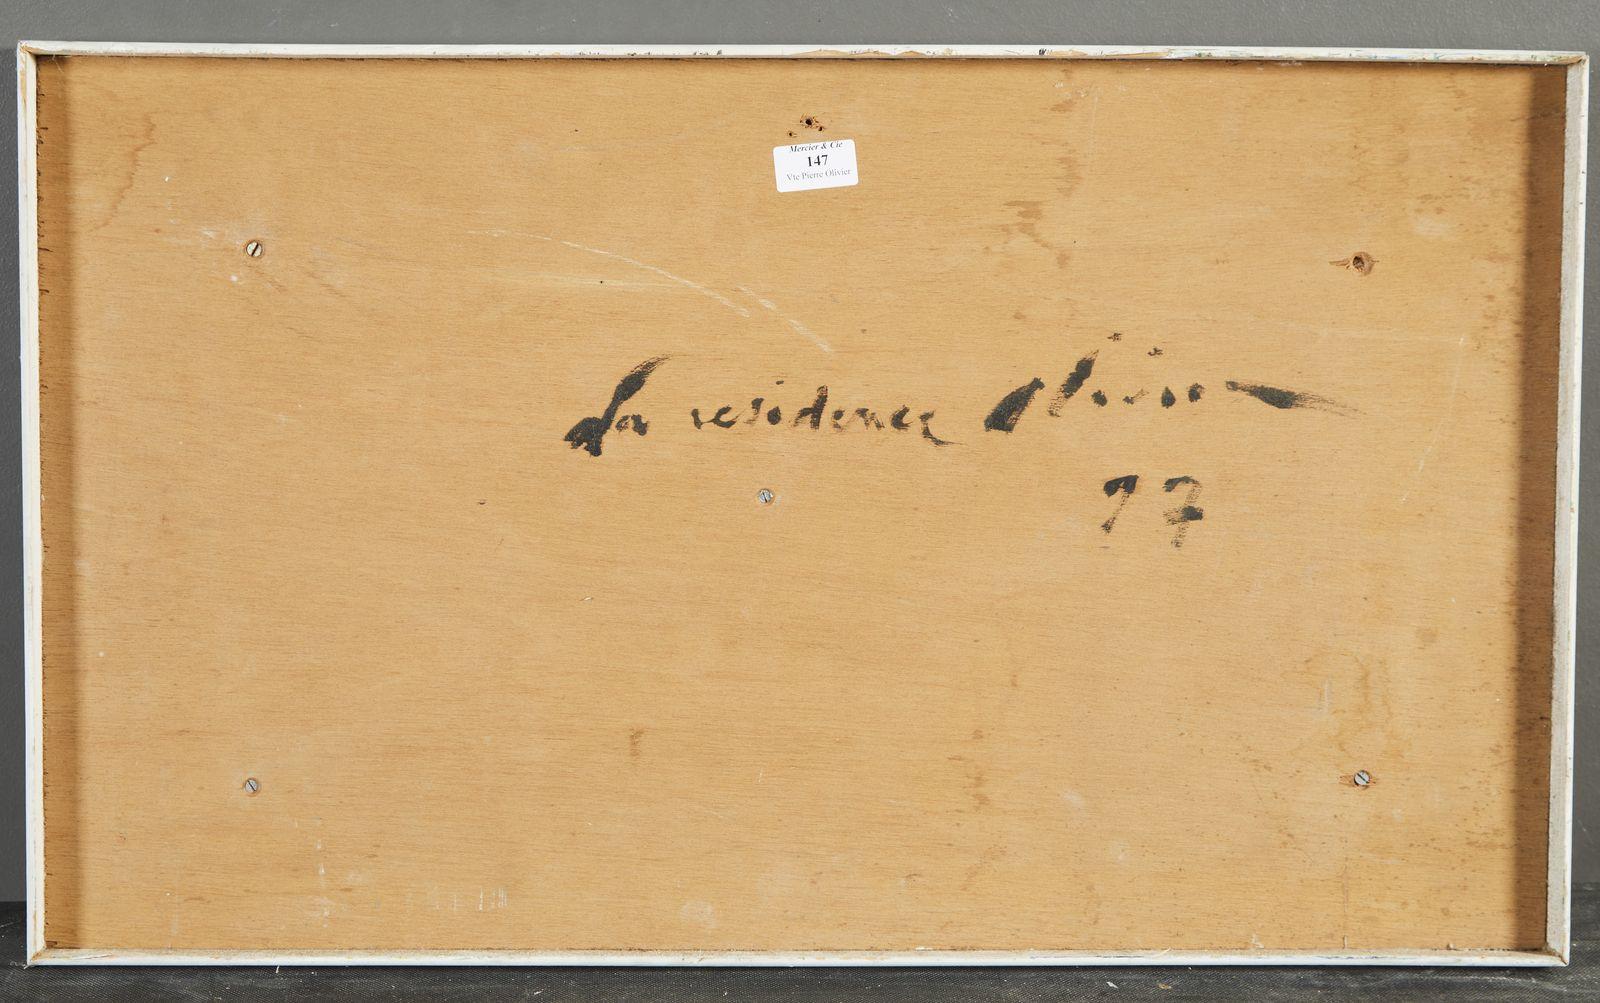 Mercier & Cie
147
Vte Pierre Olivier
La residence Olivier
77